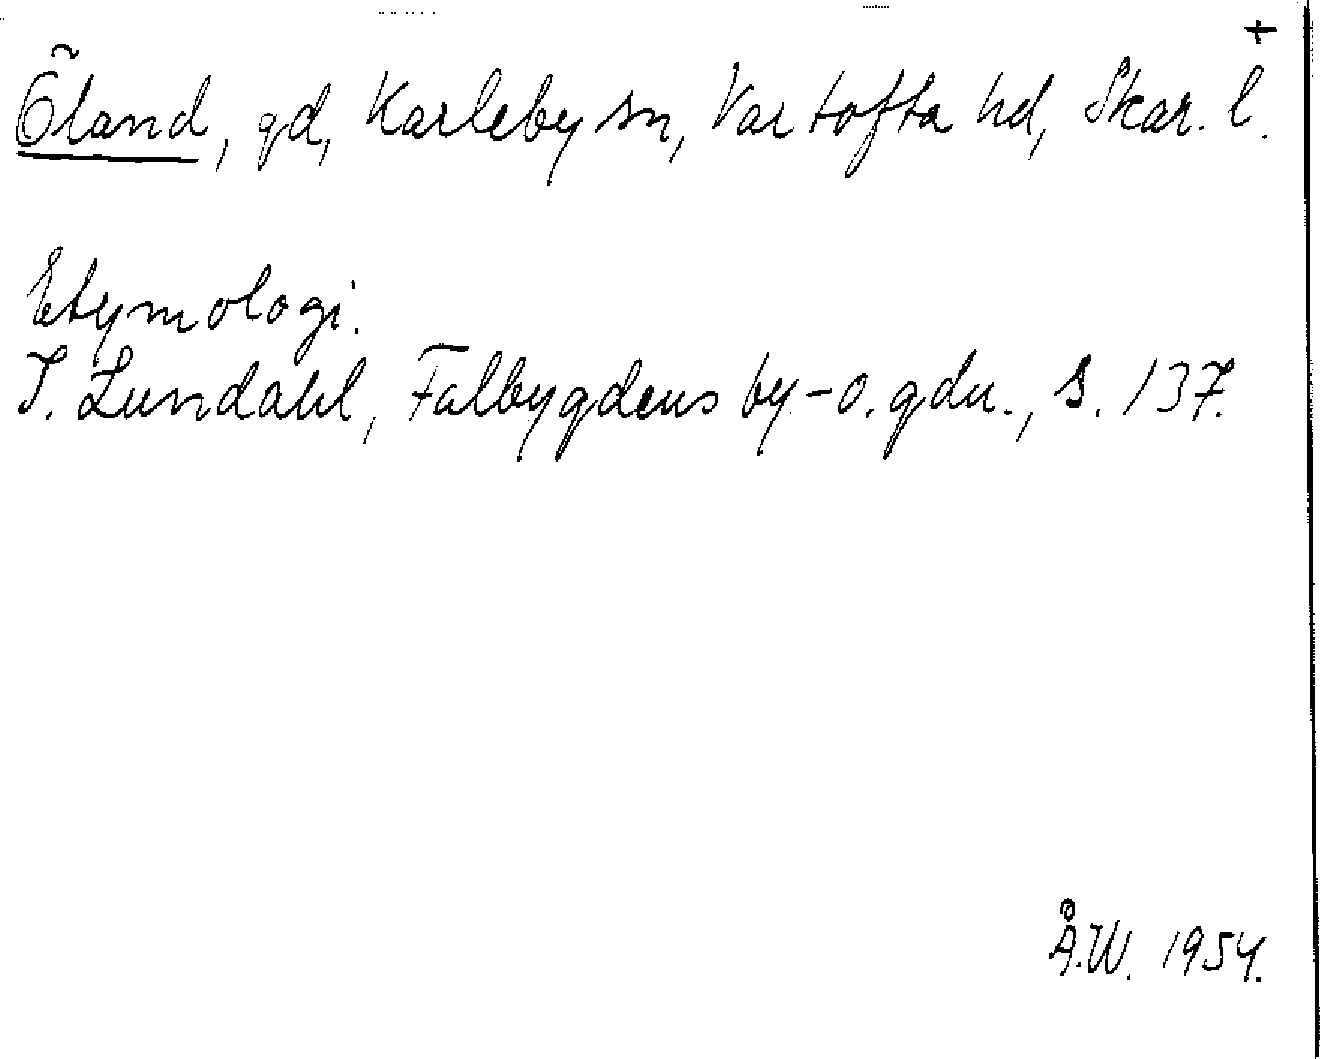 +
Öland, gd, Karleby sn, Vartofta hd, Skar. l.
Etymologi.
I. Lundahl, Falbygdens by- o. gdn., s. 137.
Å.W. 1954.